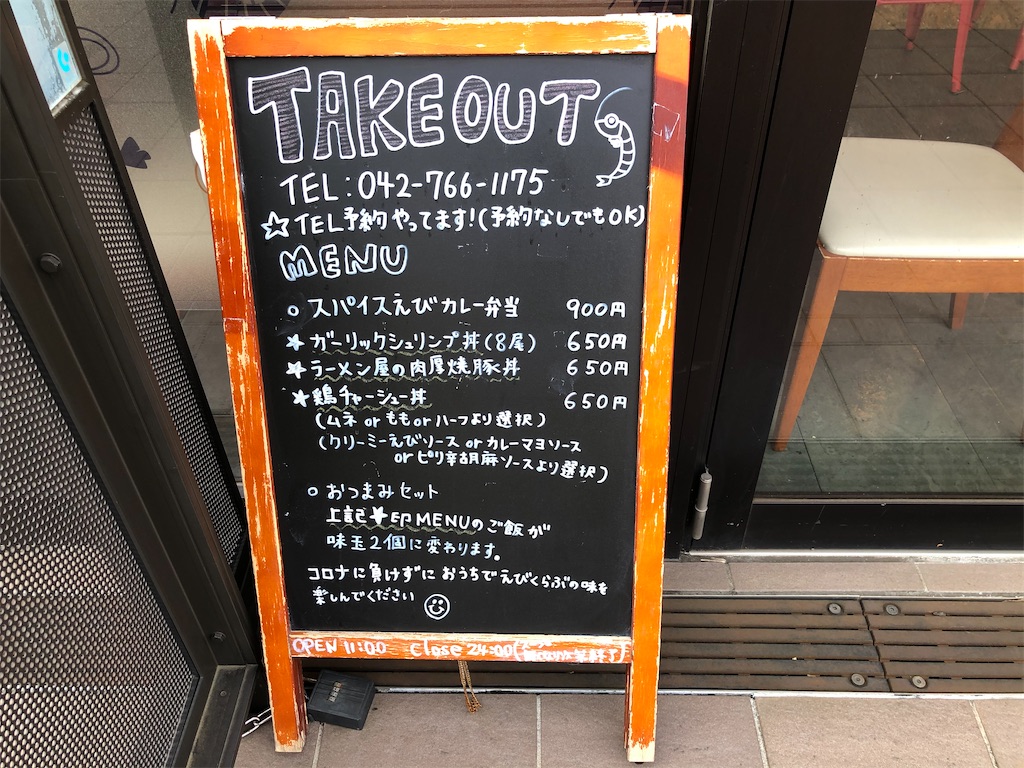 TAKE OUT
TEL：042-766-1175
☆TEL予約やってます！(予約なしでもOK)
MENU
○ スパイスえびカレー弁当 900円
★ ガーリックシュリンプ丼(8尾) 650円
★ ラーメン屋の肉厚焼豚丼 650円
★ 鶏チャーシュー丼 650円
(ムネ or もも or ハーフより選択)
(クリーミーえびソース or カレーマヨソース
or ピリ辛胡麻ソースより選択)
○ おつまみセット
上記★印MENUのご飯が
味玉2個に変わります。
コロナに負けずに おうちでえびくらぶの味を
楽しんでください
OPEN 11:00 Close 24:00